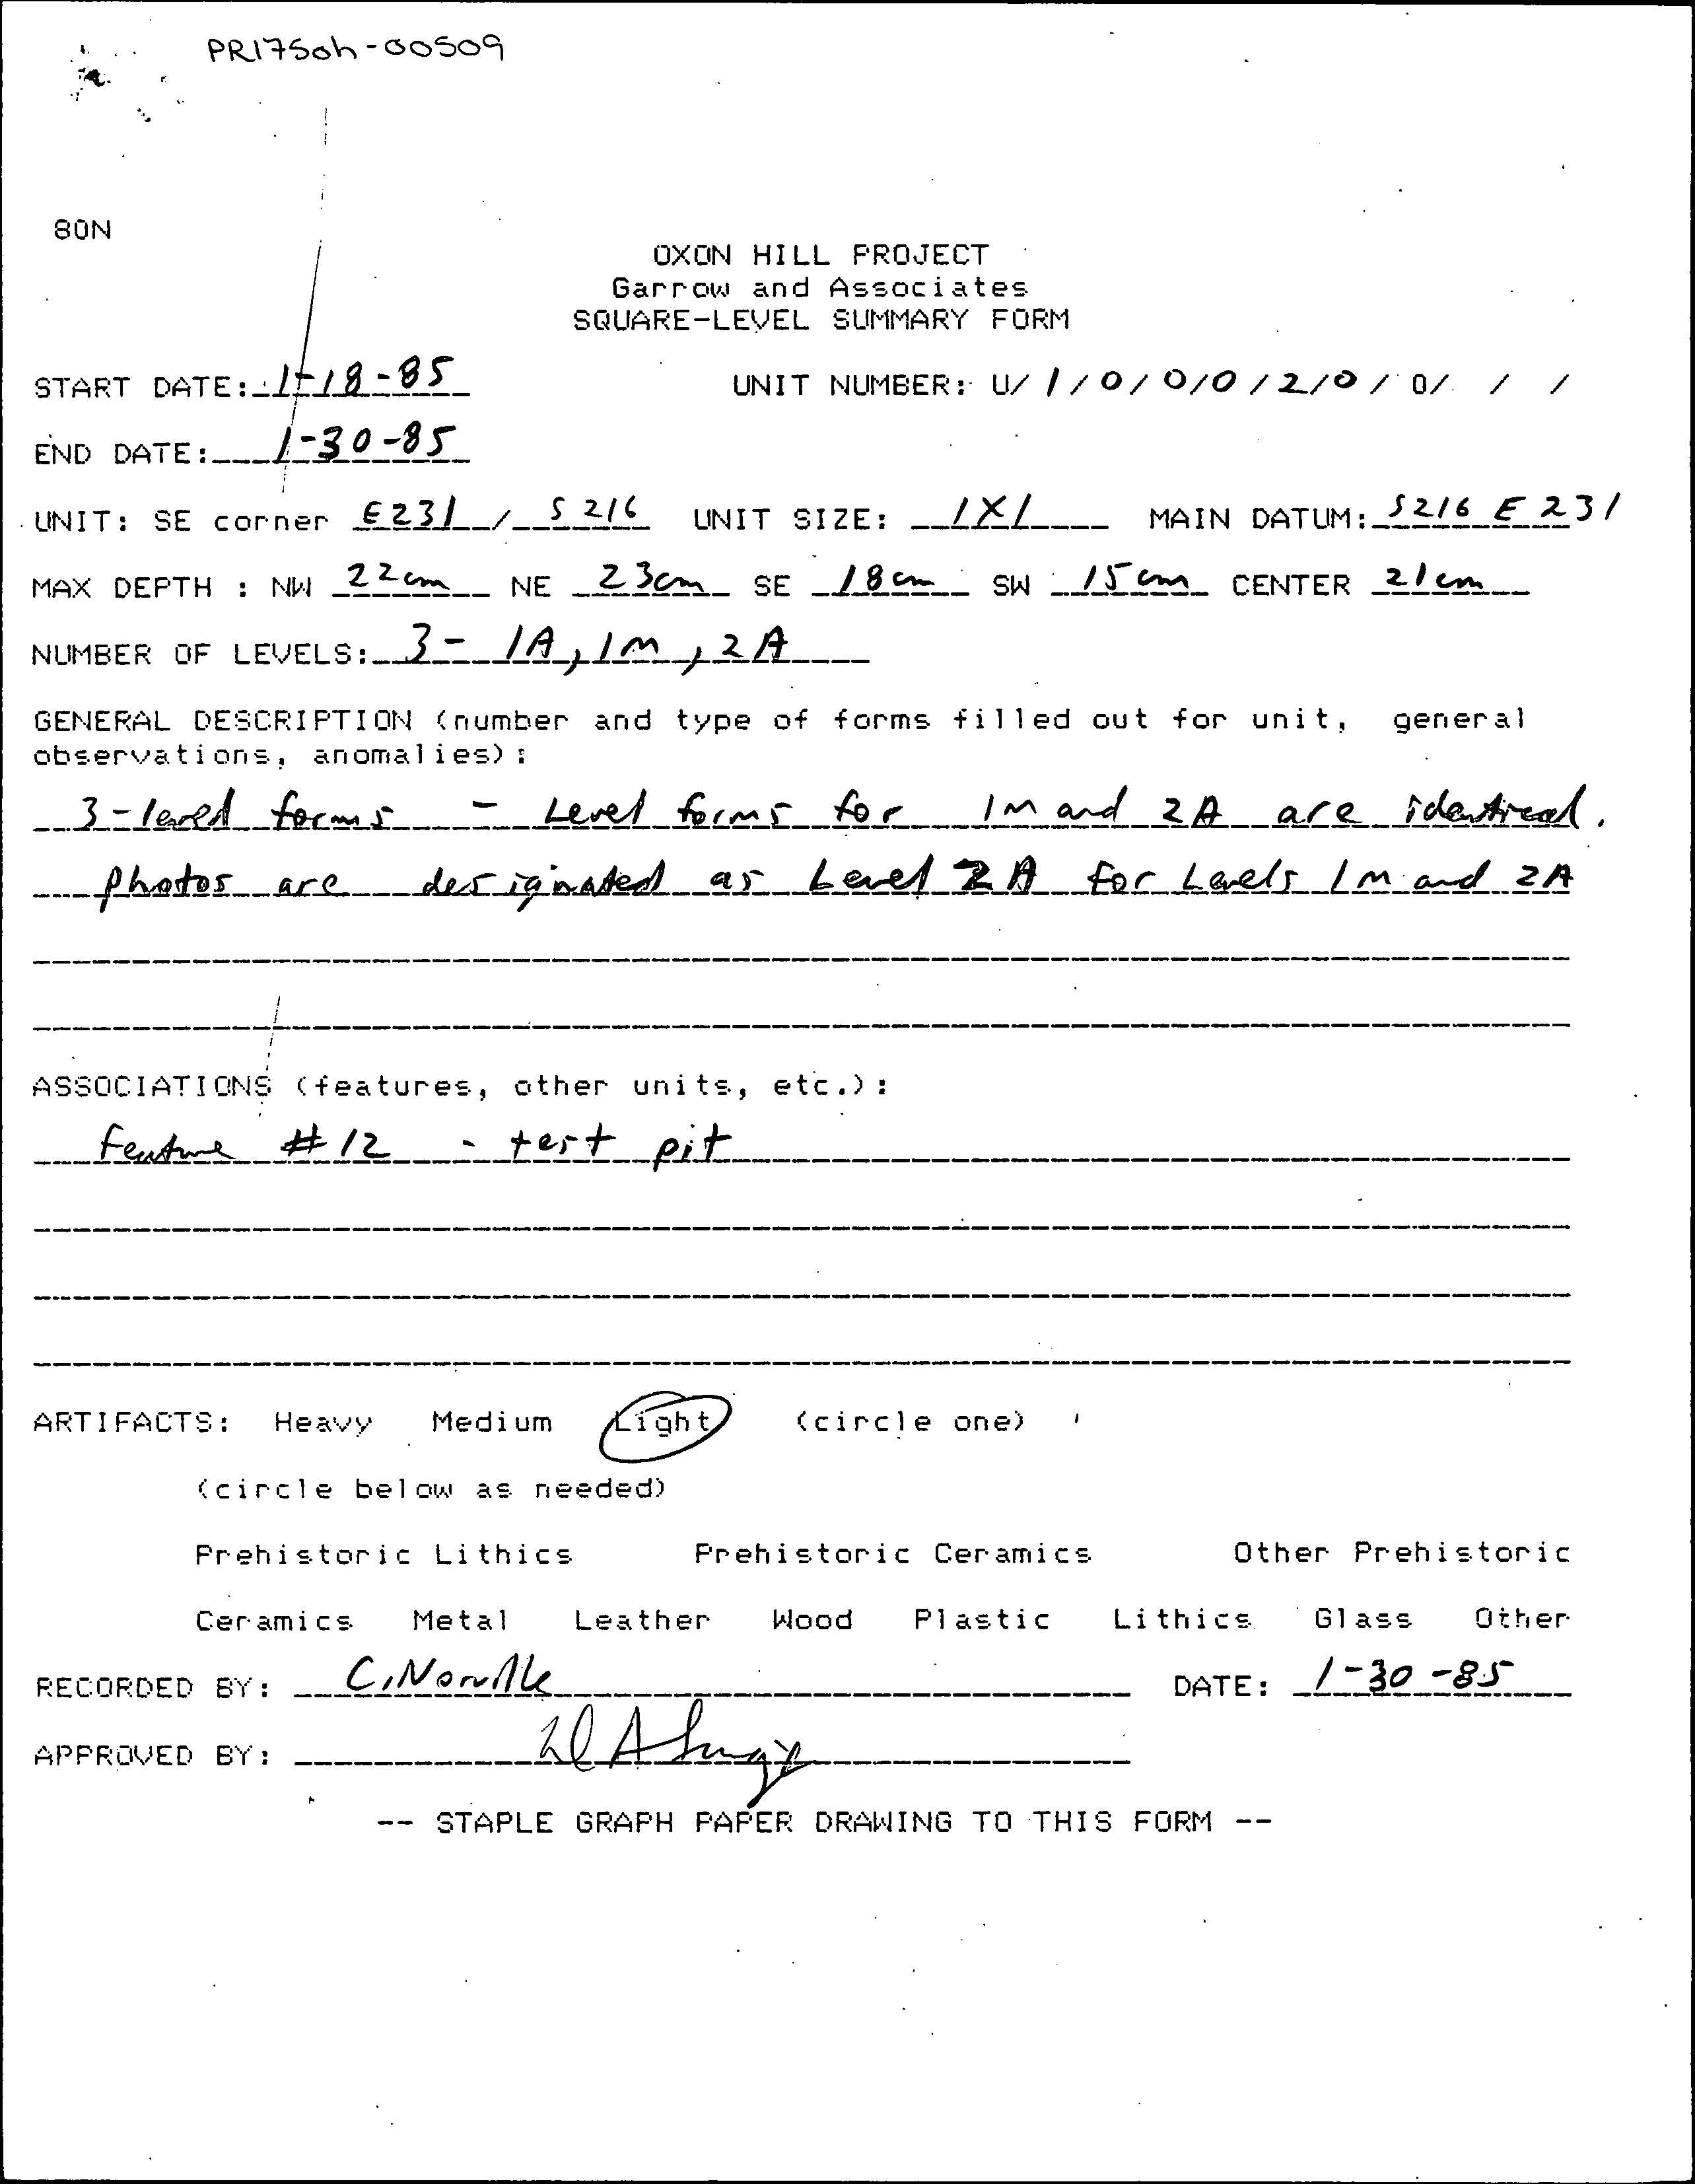 PR175oh-00509
80N
OXON HILL PROJECT
Garrow and Associates
SQUARE-LEVEL SUMMARY FORM
START DATE: 1-18-85 UNIT NUMBER: U/ 1 / 0 / 0 / 0 / 2 / 0 / 0/ / /
END DATE: 1-30-85
UNIT: SE corner E231 / S 216 UNIT SIZE: 1X1 MAIN DATUM: S216 E 231
MAX DEPTH : NW 22cm NE 23cm SE 18cm SW 15cm CENTER 21cm
NUMBER OF LEVELS: 3 - 1A, 1M, 2A
GENERAL DESCRIPTION (number and type of forms filled out for unit, general
observations, anomalies):
3 - level forms - Level forms for 1M and 2A are identical.
Photos are designated as Level 2A for Levels 1M and 2A
ASSOCIATIONS (features, other units, etc.):
Feature #12 - test pit
ARTIFACTS: Heavy Medium Light (circle one)
(circle below as needed)
Prehistoric Lithics Prehistoric Ceramics Other Prehistoric
Ceramics Metal Leather Wood Plastic Lithics Glass Other
RECORDED BY: C. Norville DATE: 1-30-85
APPROVED BY:
-- STAPLE GRAPH PAPER DRAWING TO THIS FORM --